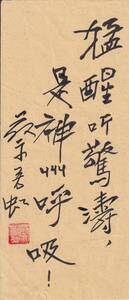 猛醒听驚濤，
是神州呼吸！